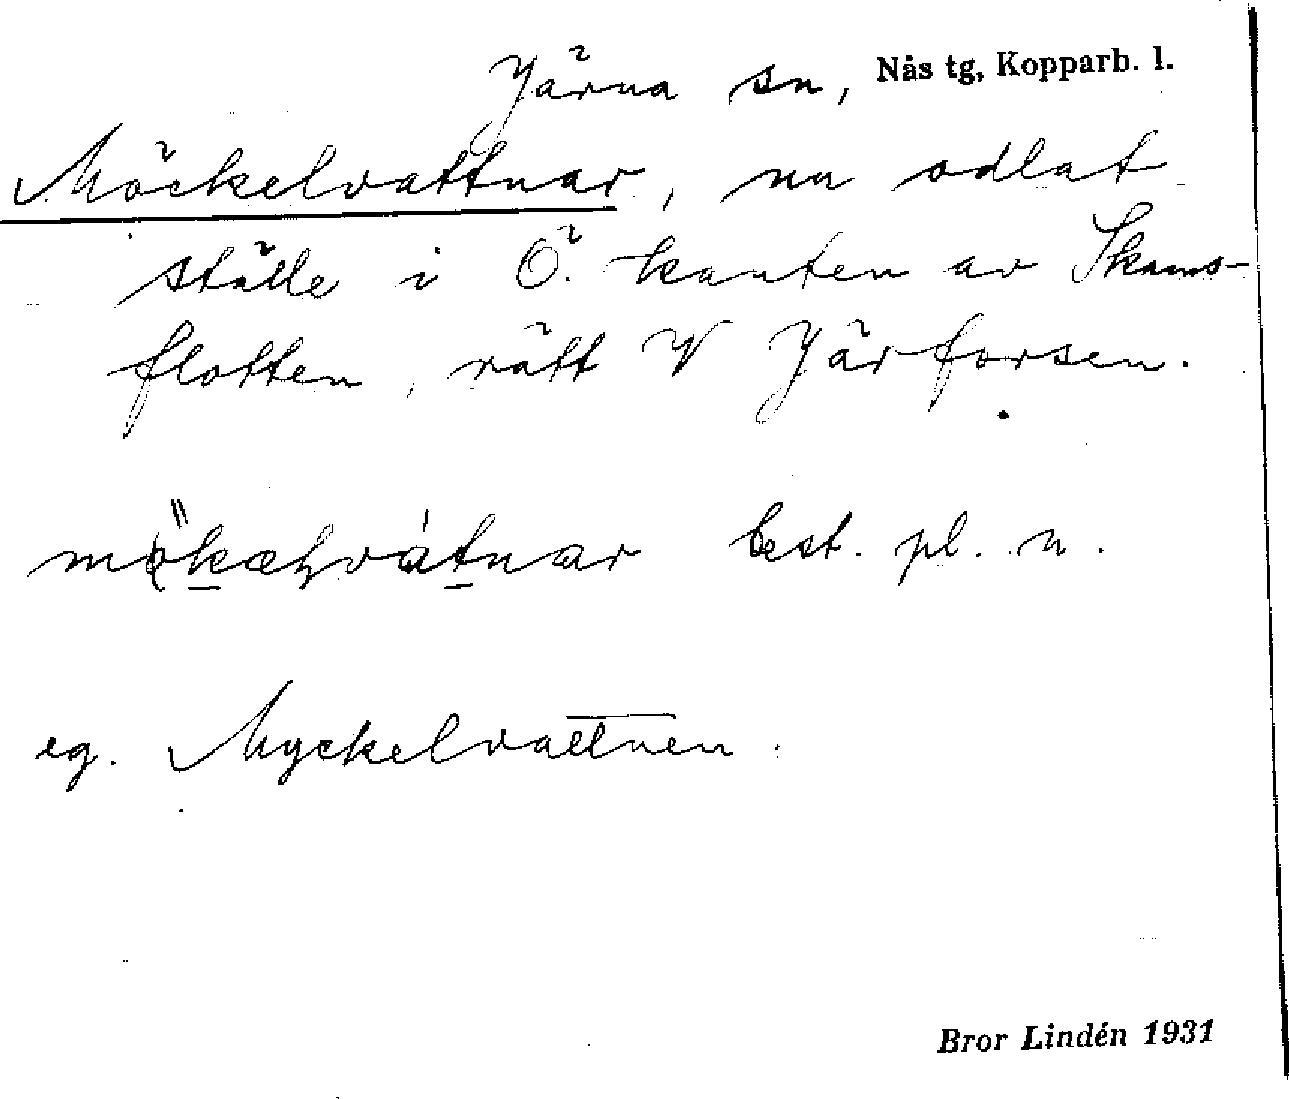 Järna sn, Nås tg, Kopparb. l.
Möckelvattnar, nu odlat
ställe i Ö. kanten av Skams-
flotten, rätt V Järforsen.
best. pl. n.
eg. Myckelvattnen.
Bror Lindén 1931